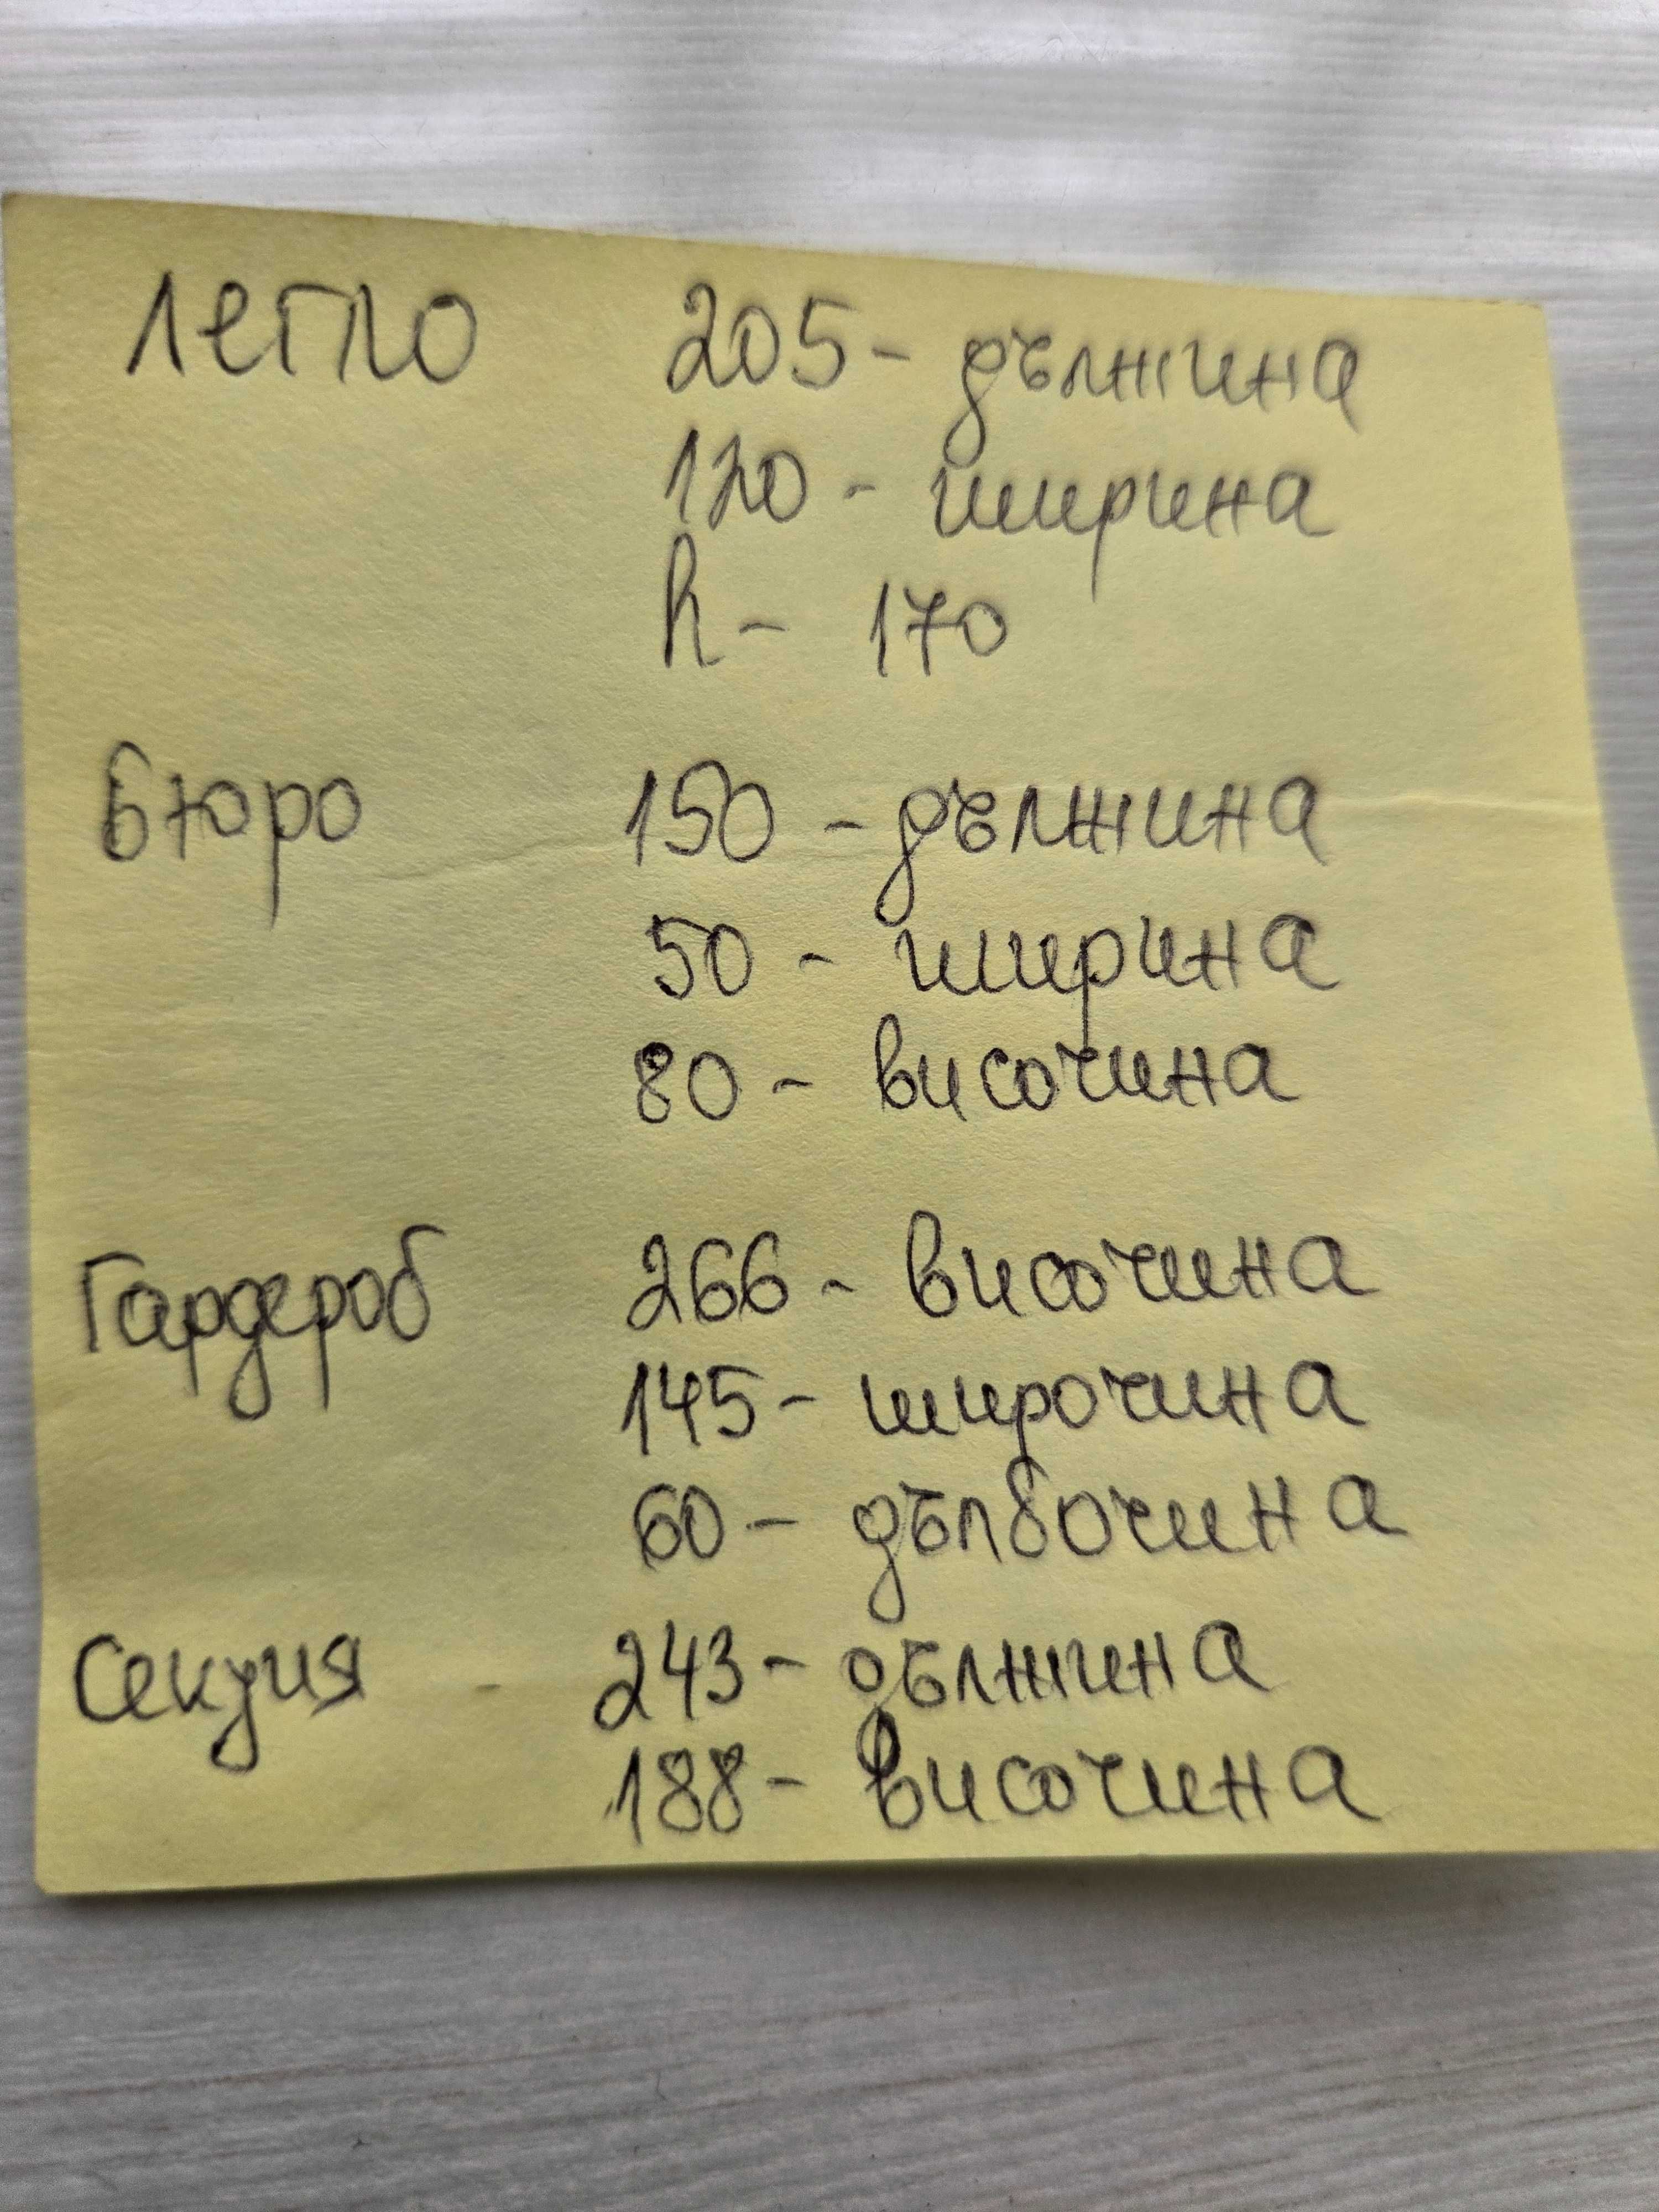 Легло 205 - дължина
120 - ширина
h - 170
Бюро 150 - дължина
50 - ширина
80 - височина
Гардероб 266 - височина
145 - широчина
60 - дълбочина
Секция - 243 - дължина
188 - височина